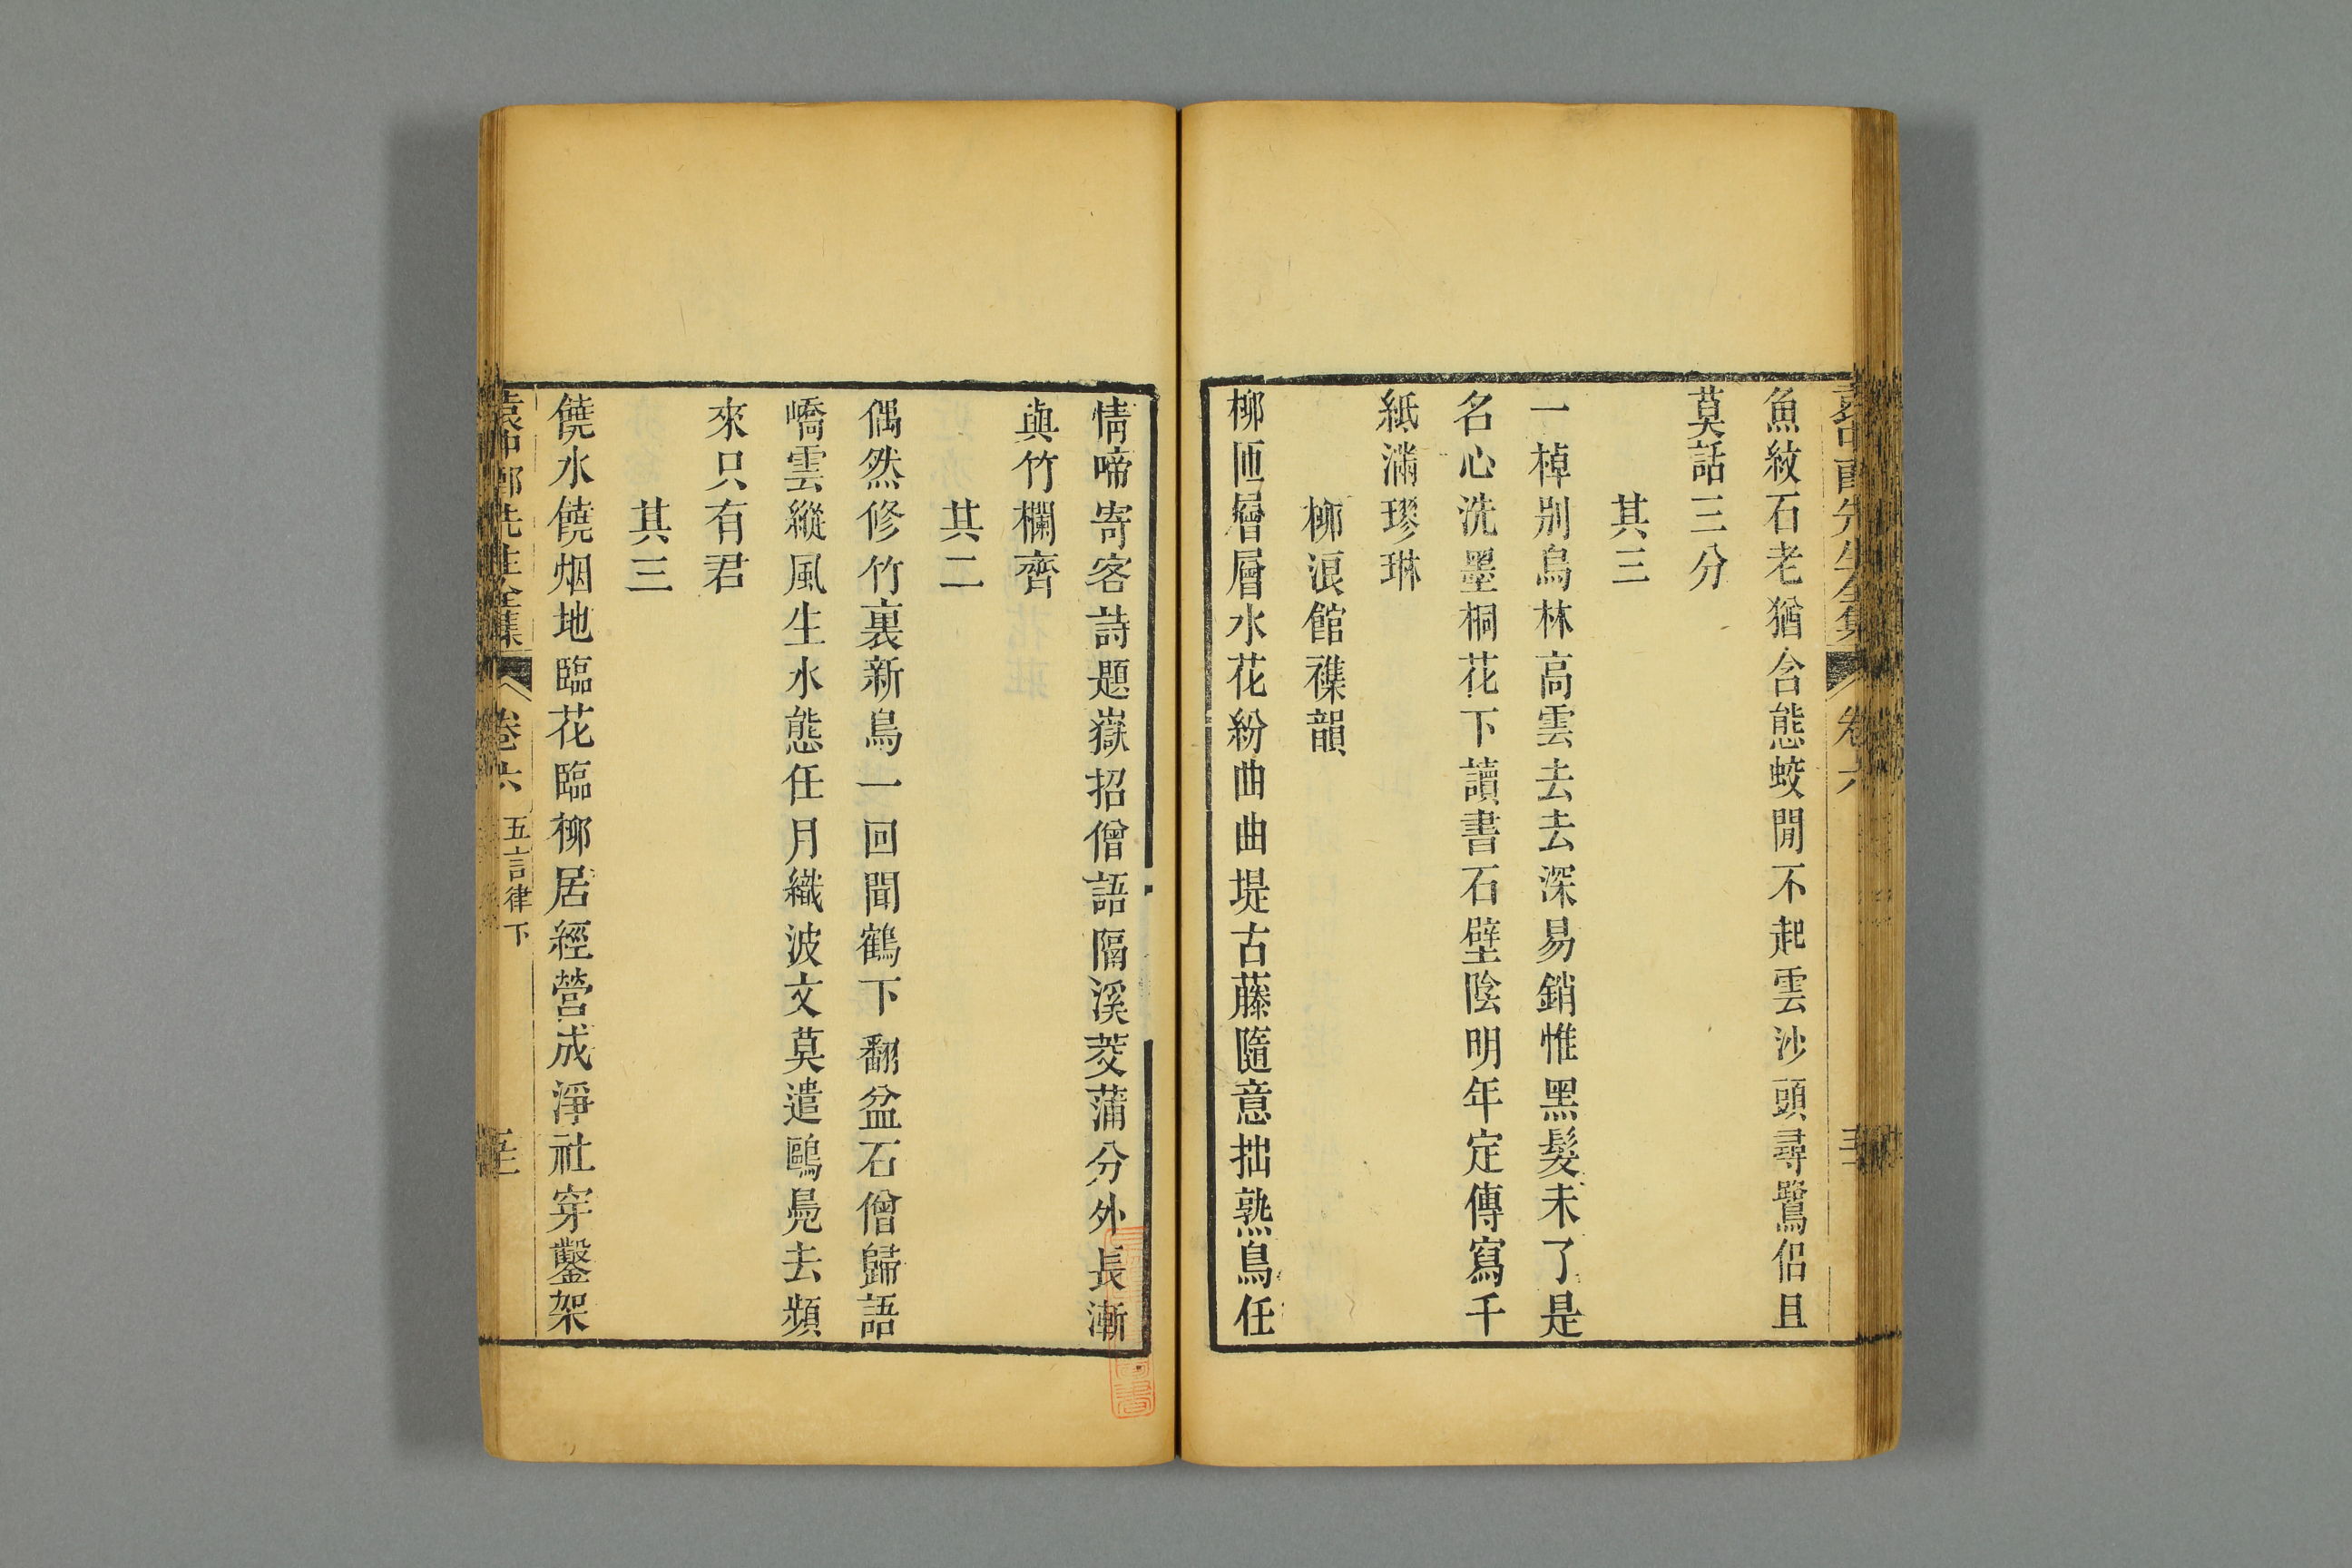 魚紋石老猶含態蛟閒不起雲沙頭尋鷺侶且
莫話三分
其三
一棹別烏林高雲去去深易銷惟黑髮未了是
名心洗墨桐花下讀書石壁陰明年定傳寫千
紙滿璆琳
柳浪館襍韻
柳匝層層水花紛曲曲堤古藤隨意拙熟鳥任
情啼寄客詩題嶽招僧語隔溪茭蒲分外長漸
與竹欄齊
其二
偶然修竹裏新鳥一回聞鶴下翻盆石僧歸語
嶠雲縱風生水態任月織波文莫遣鷗鳧去頻
來只有君
其三
饒水饒烟地臨花臨柳居經營成淨社穿鑿架
袁中郎先生全集
卷六
五言律下